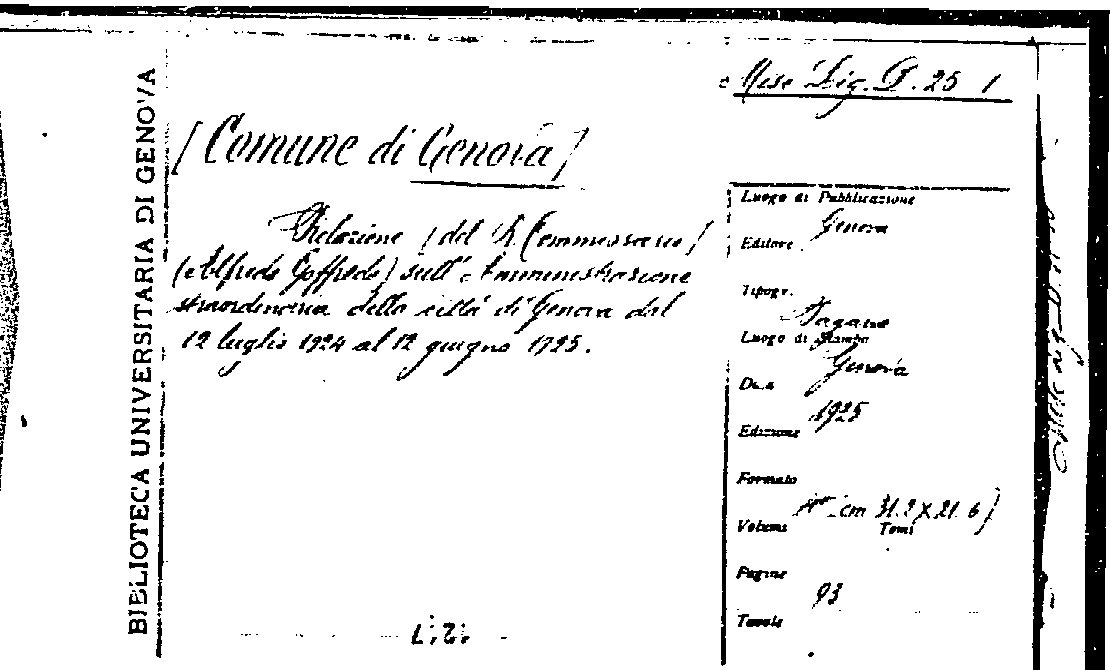 BIBLIOTECA UNIVERSITARIA DI GENOVA
Misc Lig. D. 25 1
[Comune di Genova]
Relazione [del R. Commissario]
(Alfredo Goffredo) sull'Amministrazione
straordinaria della città di Genova dal
12 luglio 1924 al 12 giugno 1925.
Luogo di Pubblicazione
Genova
Editore
Tipogr.
Pagano
Luogo di Stampa
Genova
Data
1925
Edizione
Formato
cm 31.2 X 21.6)
Volumi Tomi
Pagine
93
Tavole